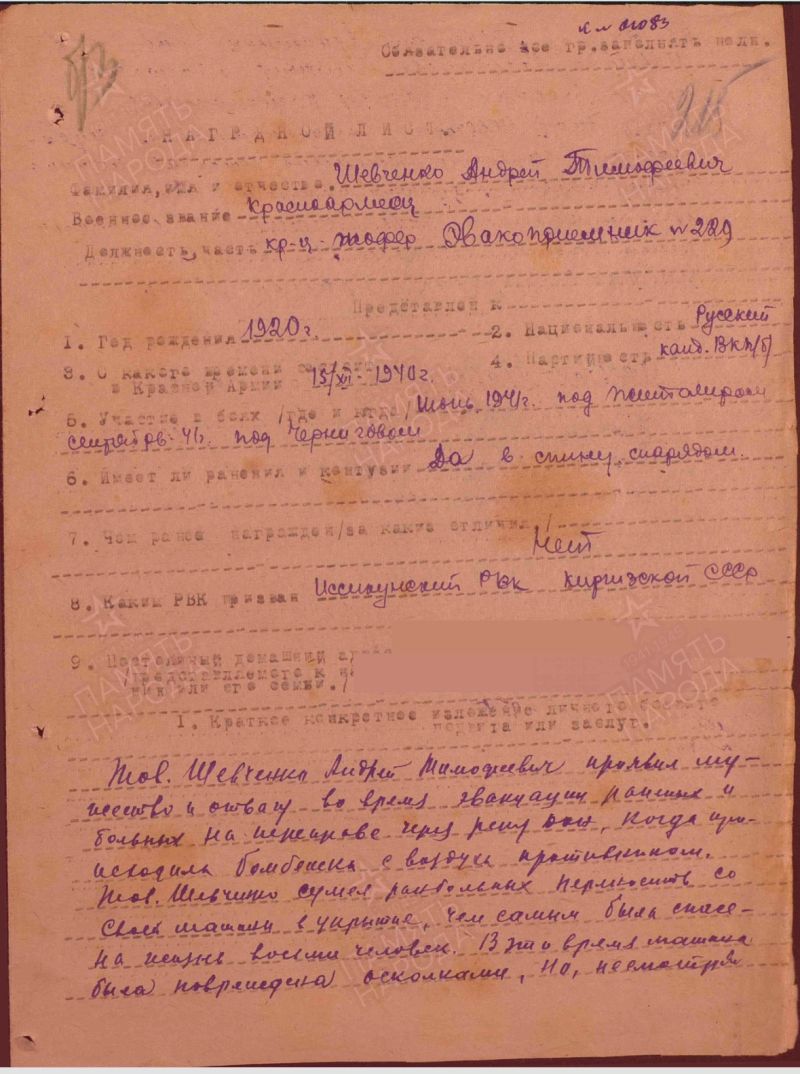 Обязательно все гр.заполнять полн.
НАГРАДНОЙ ЛИСТ
Фамилия, имя и отчество. Шевченко Андрей Тимофеевич
Военное звание Красноармеец
Должность, часть кр-ц шофер Эвакоприемник N 229
Представлен к
1. Год рождения 1920 г. 2. Национальность Русский
3. С какого времени состоит 4. Партийность канд. ВКП/б/
в Красной Армии с 15/XI - 1940 г.
5. Участие в боях /где и когда/ Июнь 1941 г. под Житомиром
сентябрь 41 г. под Черниговом
6. Имеет ли ранения и контузии Да в спину снарядом.
7. Чем ранее награжден/за какие отличия/
Нет
8. Каким РВК призван Иссыкунский РВК Киргизской СССР
9. Постоянный домашний адрес
/представляемого к
или его семьи./
1. Краткое конкретное изложение личного боевого
подвига или заслуг.
Тов. Шевченко Андрей Тимофеевич проявил му-
жество и отвагу во время эвакуации раненых и
больных на переправе через реку Дон, когда про-
исходила бомбежка с воздуха противником.
Тов. Шевченко сумел ранбольных переносить со
своей машины в укрытие, чем самым была спасе-
на жизнь восьми человек. В это время машина
была повреждена осколками, но, несмотря
ПАМЯТЬ
НАРОДА